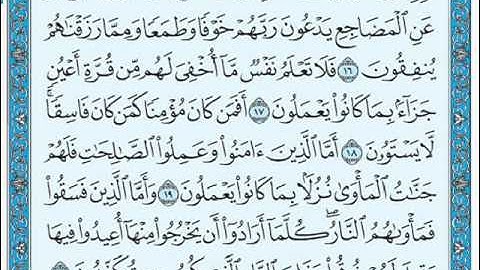 عَنِ ٱلْمَضَاجِعِ يَدْعُونَ رَبَّهُمْ خَوْفًا وَطَمَعًا وَمِمَّا رَزَقْنَٰهُمْ
يُنفِقُونَ ١٦ فَلَا تَعْلَمُ نَفْسٌ مَّآ أُخْفِىَ لَهُم مِّن قُرَّةِ أَعْيُنٍ
جَزَآءًۢ بِمَا كَانُوا۟ يَعْمَلُونَ ١٧ أَفَمَن كَانَ مُؤْمِنًا كَمَن كَانَ فَاسِقًا ۚ
لَّا يَسْتَوُۥنَ ١٨ أَمَّا ٱلَّذِينَ ءَامَنُوا۟ وَعَمِلُوا۟ ٱلصَّٰلِحَٰتِ فَلَهُمْ
جَنَّٰتُ ٱلْمَأْوَىٰ نُزُلًۢا بِمَا كَانُوا۟ يَعْمَلُونَ ١٩ وَأَمَّا ٱلَّذِينَ فَسَقُوا۟
فَمَأْوَىٰهُمُ ٱلنَّارُ ۖ كُلَّمَآ أَرَادُوٓا۟ أَن يَخْرُجُوا۟ مِنْهَآ أُعِيدُوا۟ فِيهَا